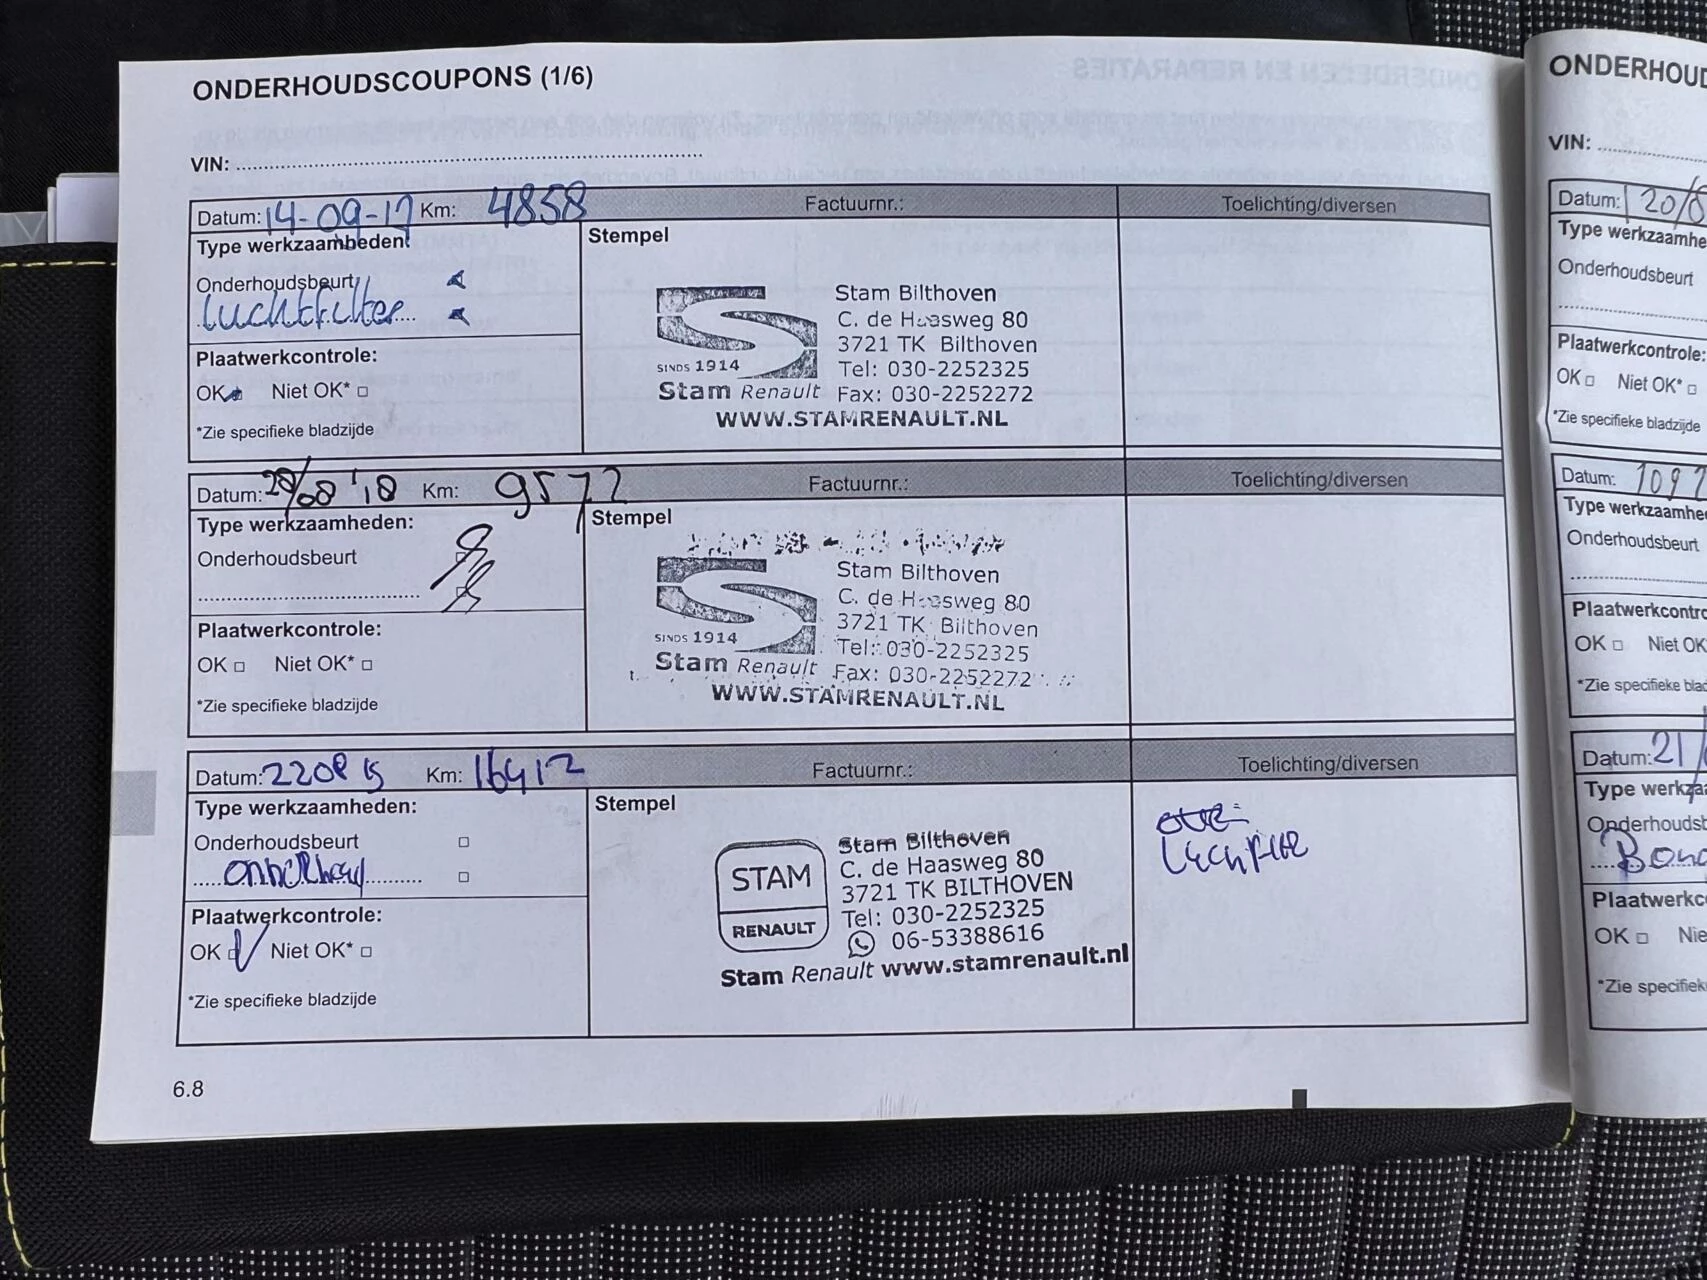 ONDERHOUDSCOUPONS (1/6)
VIN:
Datum: 14-09-17 Km: 4858 Factuurnr.: Toelichting/diversen
Type werkzaamheden:
Stempel
Onderhoudsbeurt
Luchtfilter
Plaatwerkcontrole:
OK Niet OK*
*Zie specifieke bladzijde
Stam Bilthoven
C. de Haasweg 80
3721 TK Bilthoven
SINDS 1914 Tel: 030-2252325
Stam Renault Fax: 030-2252272
WWW.STAMRENAULT.NL
Datum: 28/08 '18 Km: 9572 Factuurnr.: Toelichting/diversen
Type werkzaamheden:
Stempel
Onderhoudsbeurt
Plaatwerkcontrole:
OK Niet OK*
*Zie specifieke bladzijde
Stam Bilthoven
C. de Haasweg 80
3721 TK Bilthoven
SINDS 1914 Tel: 030-2252325
Stam Renault Fax: 030-2252272
WWW.STAMRENAULT.NL
Datum: Km: 16412 Factuurnr.: Toelichting/diversen
Type werkzaamheden:
Stempel
Onderhoudsbeurt
Plaatwerkcontrole:
OK Niet OK*
*Zie specifieke bladzijde
STAM
RENAULT
Stam Bilthoven
C. de Haasweg 80
3721 TK BILTHOVEN
Tel: 030-2252325
06-53388616
Stam Renault www.stamrenault.nl
6.8
VIN:
Datum:
Onderhoudsbeurt
Plaatwerkcontrole:
OK Niet OK*
*Zie specifieke bladzijde
Datum:
Onderhoudsbeurt
OK Niet OK
Datum: 21/
OK